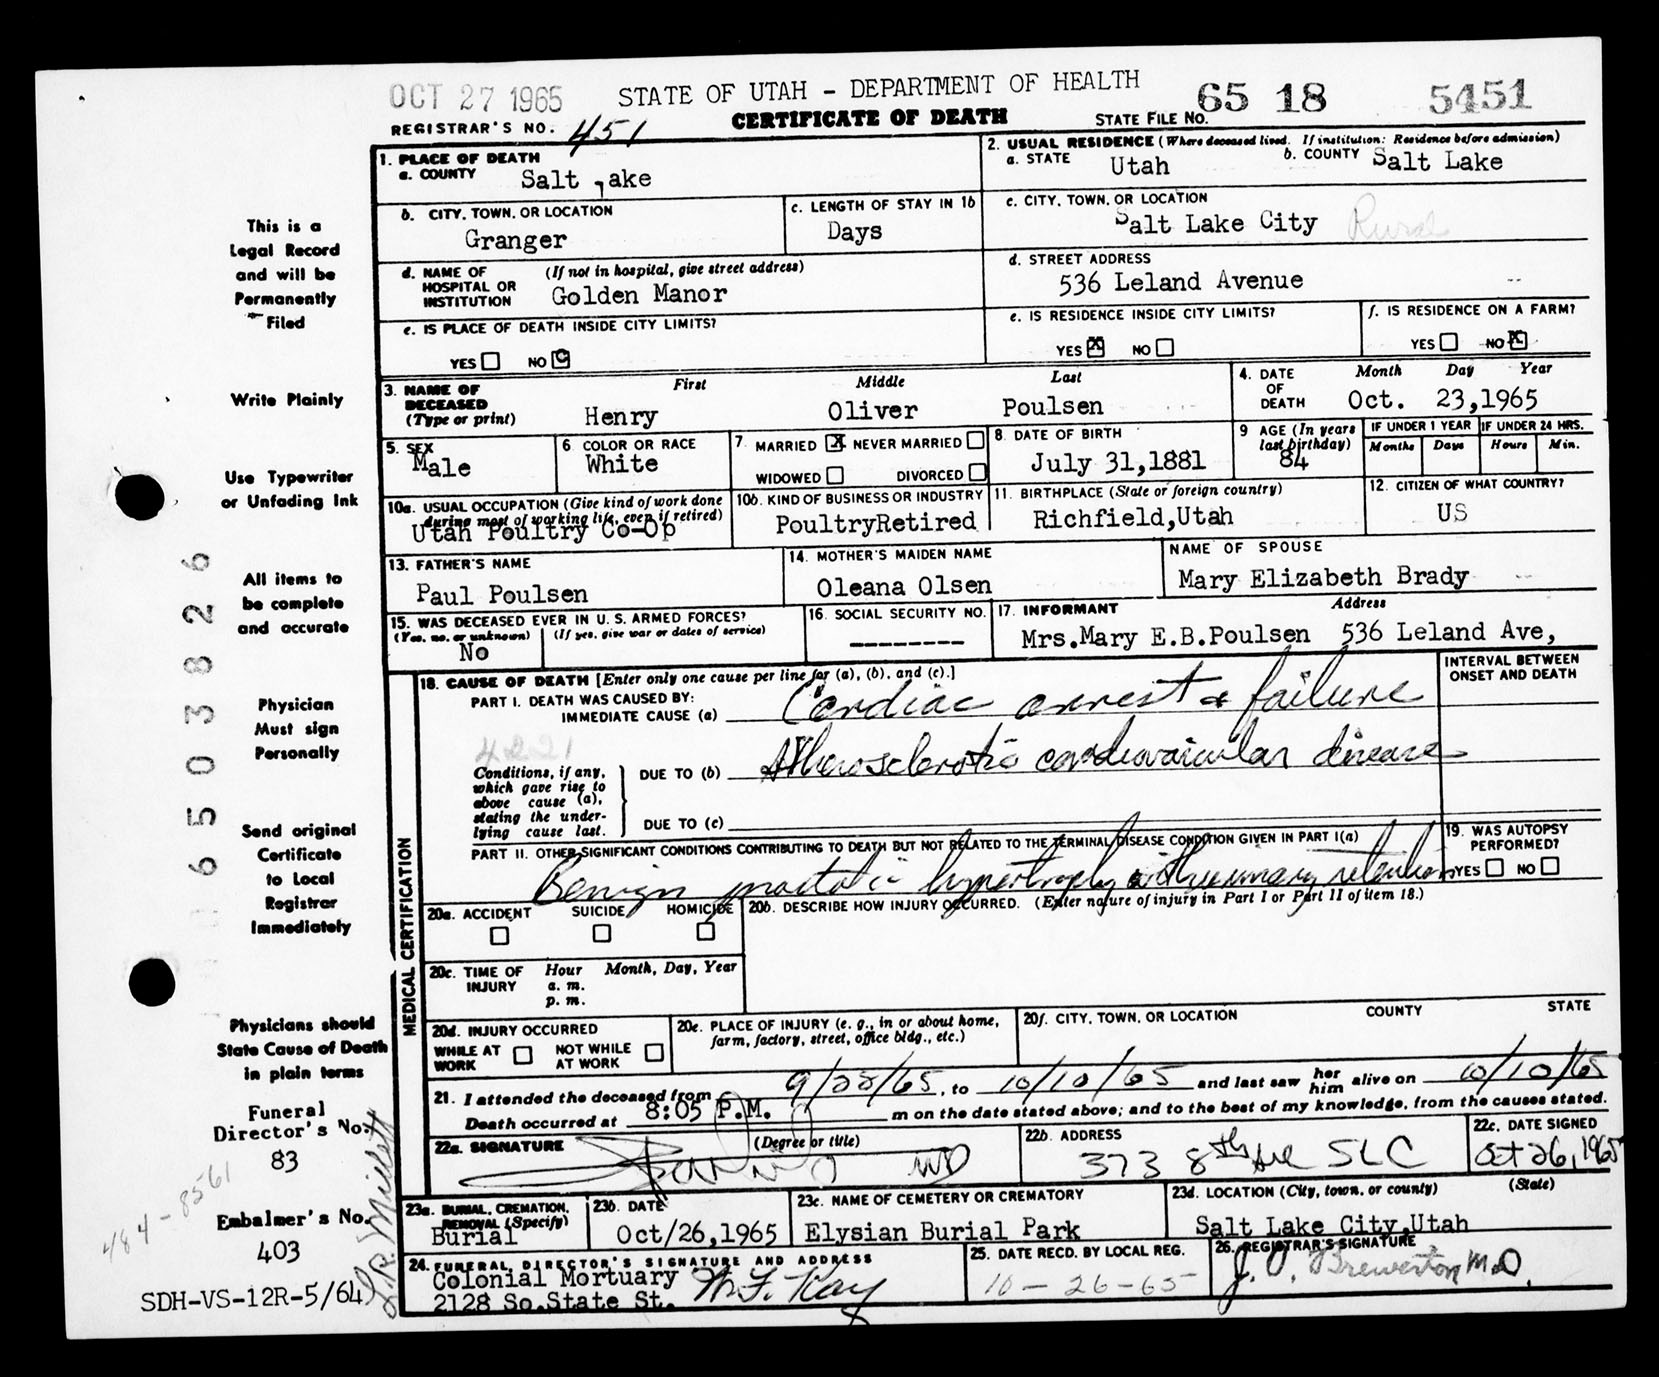 OCT 27 1965 STATE OF UTAH - DEPARTMENT OF HEALTH 65 18 5451
REGISTRAR'S NO. 451 CERTIFICATE OF DEATH STATE FILE NO.
1. PLACE OF DEATH
a. COUNTY Salt ake
2. USUAL RESIDENCE (Where deceased lived. If institution: Residence before admission)
a. STATE Utah b. COUNTY Salt Lake
b. CITY, TOWN, OR LOCATION
Granger
c. LENGTH OF STAY IN 1b
Days
c. CITY, TOWN, OR LOCATION
Salt Lake City Rural
d. NAME OF HOSPITAL OR INSTITUTION (If not in hospital, give street address)
Golden Manor
d. STREET ADDRESS
536 Leland Avenue
e. IS PLACE OF DEATH INSIDE CITY LIMITS?
YES NO
e. IS RESIDENCE INSIDE CITY LIMITS?
YES X NO
f. IS RESIDENCE ON A FARM?
YES NO X
3. NAME OF DECEASED (Type or print)
First Middle Last
Henry Oliver Poulsen
4. DATE OF DEATH Month Day Year
Oct. 23,1965
5. SEX
Male
6 COLOR OR RACE
White
7. MARRIED X NEVER MARRIED
WIDOWED DIVORCED
8. DATE OF BIRTH
July 31,1881
9 AGE (In years last birthday)
84
IF UNDER 1 YEAR IF UNDER 24 HRS.
Months Days Hours Min.
10a. USUAL OCCUPATION (Give kind of work done during most of working life, even if retired)
Utah Poultry Co-Op
10b. KIND OF BUSINESS OR INDUSTRY
PoultryRetired
11. BIRTHPLACE (State or foreign country)
Richfield,Utah
12. CITIZEN OF WHAT COUNTRY?
US
13. FATHER'S NAME
Paul Poulsen
14. MOTHER'S MAIDEN NAME
Oleana Olsen
NAME OF SPOUSE
Mary Elizabeth Brady
15. WAS DECEASED EVER IN U. S. ARMED FORCES?
(Yes, no, or unknown) (If yes, give war or dates of service)
No
16. SOCIAL SECURITY NO.
--------
17. INFORMANT Address
Mrs.Mary E.B.Poulsen 536 Leland Ave,
18. CAUSE OF DEATH [Enter only one cause per line for (a), (b), and (c).]
INTERVAL BETWEEN ONSET AND DEATH
PART I. DEATH WAS CAUSED BY:
IMMEDIATE CAUSE (a) Cardiac arrest & failure
4221
Conditions, if any, which gave rise to above cause (a), stating the underlying cause last.
DUE TO (b) Atherosclerotic cardiovascular disease
DUE TO (c)
PART II. OTHER SIGNIFICANT CONDITIONS CONTRIBUTING TO DEATH BUT NOT RELATED TO THE TERMINAL DISEASE CONDITION GIVEN IN PART I(a)
Benign prostatic hypertrophy with urinary retention
19. WAS AUTOPSY PERFORMED?
YES NO
20a. ACCIDENT SUICIDE HOMICIDE
20b. DESCRIBE HOW INJURY OCCURRED. (Enter nature of injury in Part I or Part II of item 18.)
20c. TIME OF INJURY Hour Month, Day, Year
a. m.
p. m.
20d. INJURY OCCURRED
WHILE AT WORK NOT WHILE AT WORK
20e. PLACE OF INJURY (e. g., in or about home, farm, factory, street, office bldg., etc.)
20f. CITY, TOWN, OR LOCATION COUNTY STATE
21. I attended the deceased from 9/28/65, to 10/10/65 and last saw her him alive on 10/10/65
Death occurred at 8:05 P.M. m on the date stated above; and to the best of my knowledge, from the causes stated.
22a. SIGNATURE (Degree or title)
MD
22b. ADDRESS
373 8th Ave SLC
22c. DATE SIGNED
Oct 26, 1965
23a. BURIAL, CREMATION, REMOVAL (Specify)
Burial
23b. DATE
Oct/26,1965
23c. NAME OF CEMETERY OR CREMATORY
Elysian Burial Park
23d. LOCATION (City, town, or county) (State)
Salt Lake City,Utah
24. FUNERAL DIRECTOR'S SIGNATURE AND ADDRESS
Colonial Mortuary
2128 So.State St.
W. F. Kay
25. DATE RECD. BY LOCAL REG.
10-26-65
26. REGISTRAR'S SIGNATURE
J. O. Brewerton M.D.
MEDICAL CERTIFICATION
This is a
Legal Record
and will be
Permanently
Filed
Write Plainly
Use Typewriter
or Unfading Ink
All items to
be complete
and accurate
Physician
Must sign
Personally
Send original
Certificate
to Local
Registrar
Immediately
Physicians should
State Cause of Death
in plain terms
Funeral
Director's No.
83
Embalmer's No.
403
SDH-VS-12R-5/64
6503826
484-8561